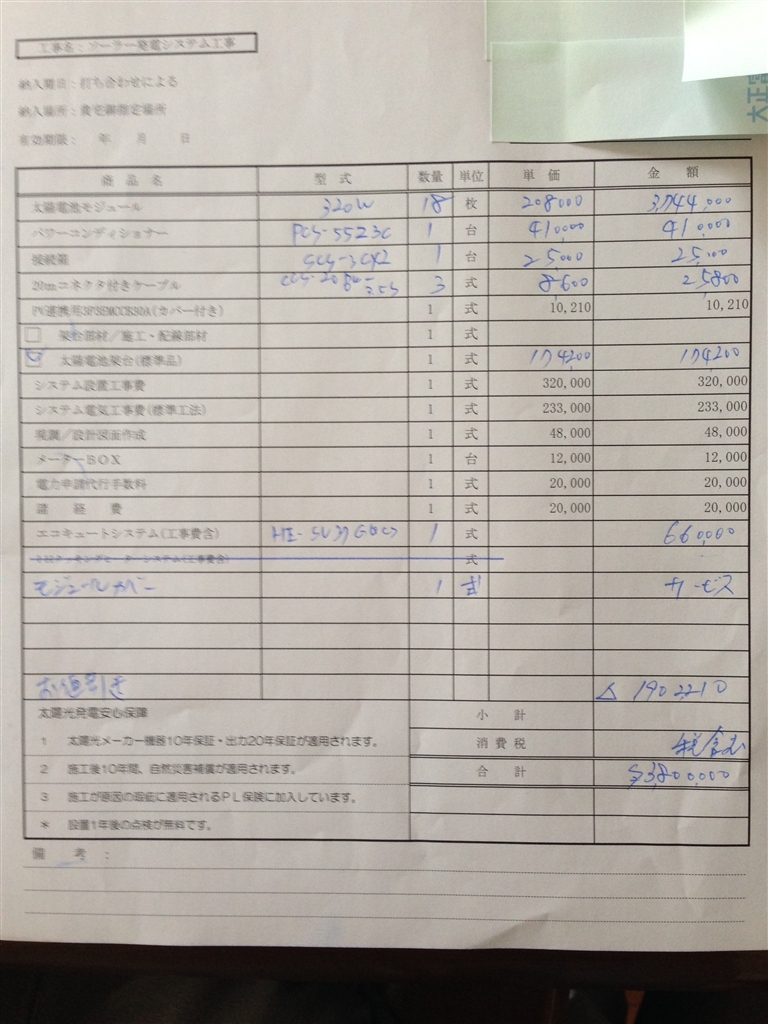 工事名：ソーラー発電システム工事
納入期日：打ち合わせによる
納入場所：貴宅御指定場所
有効期限： 年 月 日
大正
商品名 型式 数量 単位 単価 金額
太陽電池モジュール 320W 18 枚 208000 3,744,000
パワーコンディショナー PCS-55Z3C 1 台 410,000 410,000
接続箱 1 台 25,000 25,000
20mコネクタ付きケーブル 3 式 8,600 25,800
PV連携用3P3EMCCB30A(カバー付き) 1 式 10,210 10,210
架台部材／施工・配線部材 1 式
太陽電池架台(標準品) 1 式 174200 174200
システム設置工事費 1 式 320,000 320,000
システム電気工事費(標準工法) 1 式 233,000 233,000
現調／設計図面作成 1 式 48,000 48,000
メーターBOX 1 台 12,000 12,000
電力申請代行手数料 1 式 20,000 20,000
諸経費 1 式 20,000 20,000
エコキュートシステム(工事費含) 1 式 660,000
クッキングヒーターシステム(工事費含) 式
モジュールカバー 1 式 サービス
お値引き △ 1902210
太陽光発電安心保障 小計
1 太陽光メーカー機器10年保証・出力20年保証が適用されます。 消費税 税含む
2 施工後10年間、自然災害補償が適用されます。 合計 3,800,000
3 施工が原因の瑕疵に適用されるPL保険に加入しています。
* 設置1年後の点検が無料です。
備考：